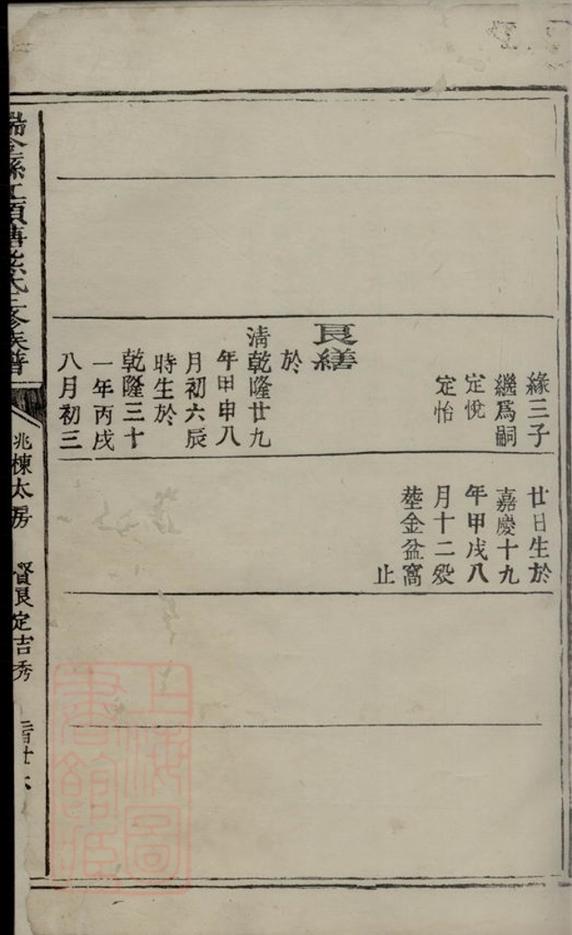 緣三子
繼爲嗣
定悅
定怡
良繕
於
清乾隆廿九
年甲申八
月初六辰
時生於
乾隆三十
一年丙戌
八月初三
廿日生於
嘉慶十九
年甲戌八
月十二歿
塟金盆窩
止
兆棟太房
賢良定吉秀
上海圖
書館藏